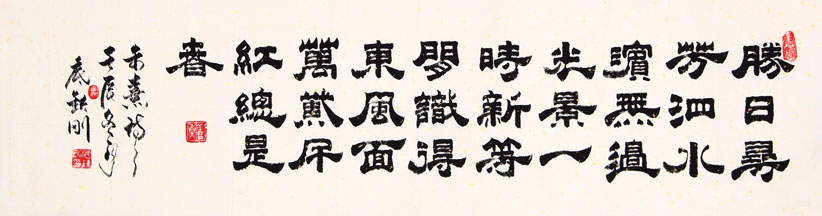 勝日尋
芳泗水
濱無邊
光景一
時新等
閒識得
東風面
萬紫千
紅總是
春
朱熹詩
壬辰冬月